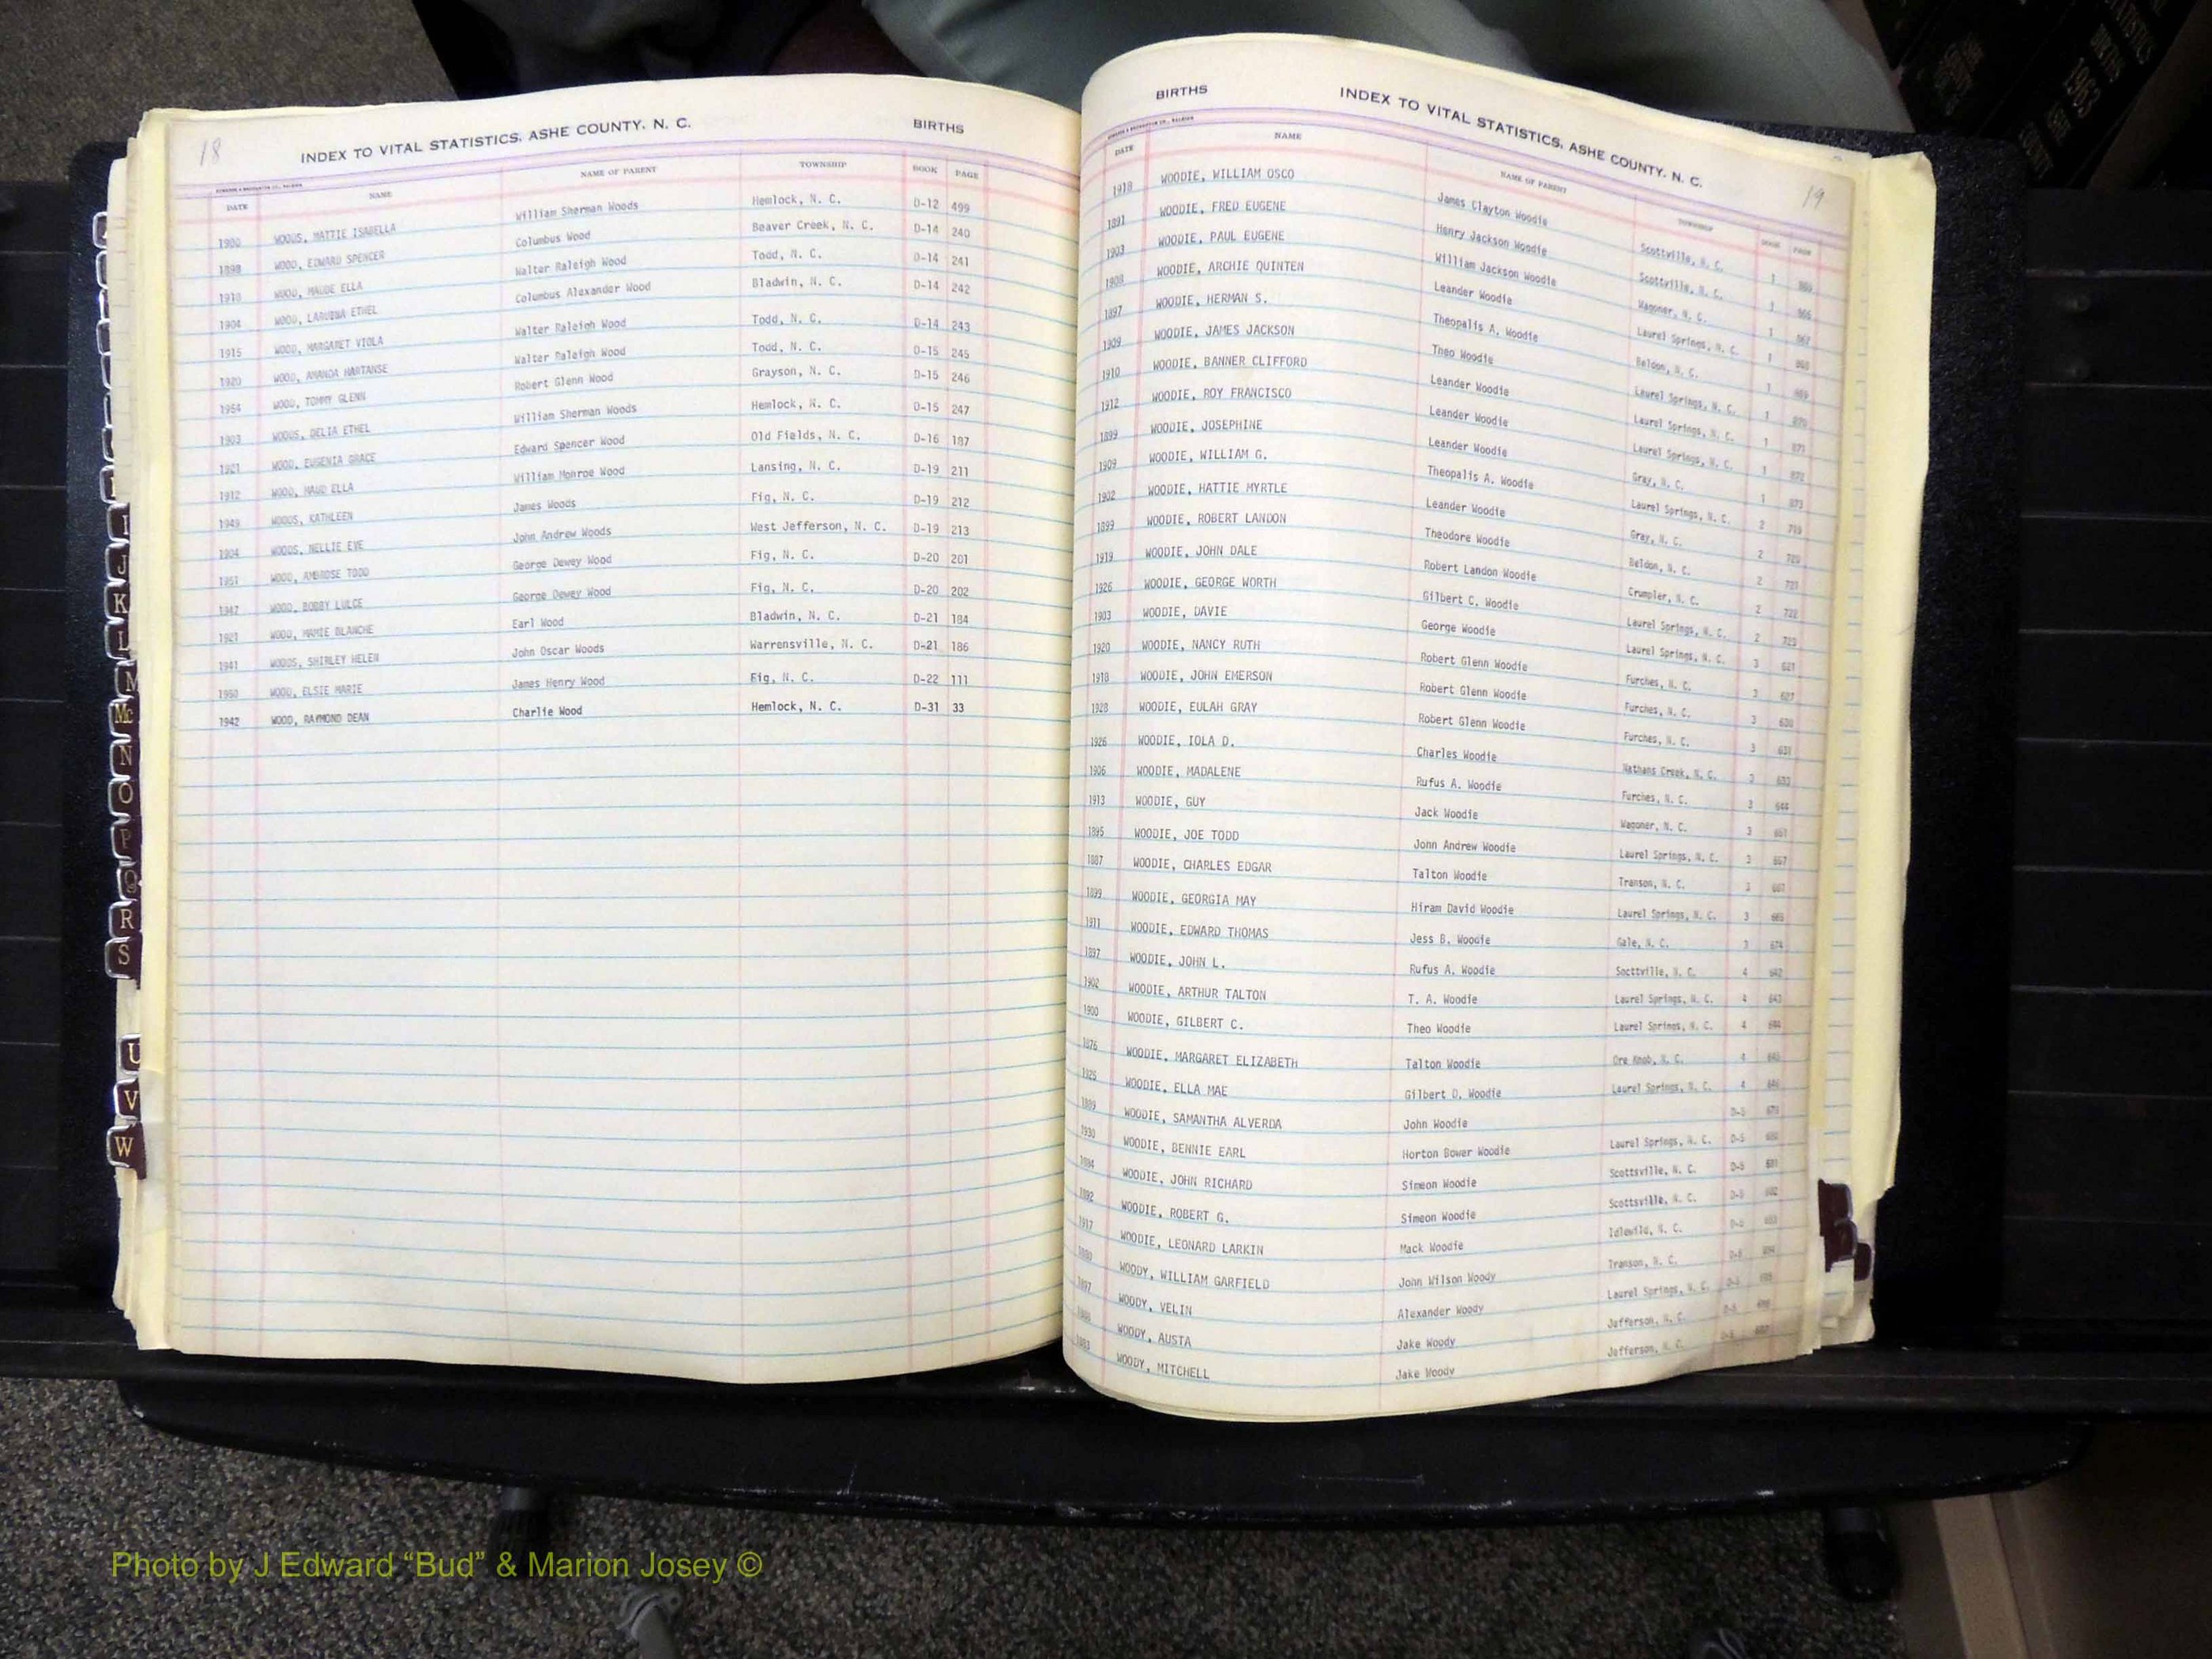 18
INDEX TO VITAL STATISTICS, ASHE COUNTY, N. C. BIRTHS
DATE NAME NAME OF PARENT TOWNSHIP BOOK PAGE
1900 WOODS, MATTIE ISABELLA William Sherman Woods Hemlock, N. C. D-12 499
1898 WOOD, EDWARD SPENCER Columbus Wood Beaver Creek, N. C. D-14 240
1910 WOOD, MAUDE ELLA Walter Raleigh Wood Todd, N. C. D-14 241
1904 WOOD, ETHEL Columbus Alexander Wood Bladwin, N. C. D-14 242
1915 WOOD, MARGARET VIOLA Walter Raleigh Wood Todd, N. C. D-14 243
1920 WOOD, AMANDA HARTANSE Walter Raleigh Wood Todd, N. C. D-15 245
1954 WOOD, TOMMY GLENN Robert Glenn Wood Grayson, N. C. D-15 246
1903 WOODS, DELIA ETHEL William Sherman Woods Hemlock, N. C. D-15 247
1921 WOOD, EUGENIA GRACE Edward Spencer Wood Old Fields, N. C. D-16 187
1912 WOOD, MAUD ELLA William Monroe Wood Lansing, N. C. D-19 211
1949 WOODS, KATHLEEN James Woods Fig, N. C. D-19 212
1904 WOODS, NELLIE EVE John Andrew Woods West Jefferson, N. C. D-19 213
WOOD, AMBROSE TODD George Dewey Wood Fig, N. C. D-20 201
1947 WOOD, BOBBY LULCE George Dewey Wood Fig, N. C. D-20 202
1921 WOOD, MAMIE BLANCHE Earl Wood Bladwin, N. C. D-21 184
1941 WOODS, SHIRLEY HELEN John Oscar Woods Warrensville, N. C. D-21 186
WOOD, ELSIE MARIE James Henry Wood Fig, N. C. D-22 111
1942 WOOD, RAYMOND DEAN Charlie Wood Hemlock, N. C. D-31 33
I
J
K
L
M
Mc
N
O
P
Q
R
S
U
V
W
BIRTHS INDEX TO VITAL STATISTICS, ASHE COUNTY, N. C.
19
DATE NAME NAME OF PARENT TOWNSHIP BOOK PAGE
1918 WOODIE, WILLIAM OSCO James Clayton Woodie Scottville, N. C. 1
1891 WOODIE, FRED EUGENE Henry Jackson Woodie Scottville, N. C. 1 866
1903 WOODIE, PAUL EUGENE William Jackson Woodie Wagoner, N. C. 1 867
1908 WOODIE, ARCHIE QUINTEN Leander Woodie Laurel Springs, N. C. 1 868
1897 WOODIE, HERMAN S. Theopalis A. Woodie Beldon, N. C. 1 869
1909 WOODIE, JAMES JACKSON Theo Woodie Laurel Springs, N. C. 1 870
1910 WOODIE, BANNER CLIFFORD Leander Woodie Laurel Springs, N. C. 1 871
1912 WOODIE, ROY FRANCISCO Leander Woodie Laurel Springs, N. C. 1 872
1899 WOODIE, JOSEPHINE Leander Woodie Gray, N. C. 1 873
1909 WOODIE, WILLIAM G. Theopalis A. Woodie Laurel Springs, N. C. 2 719
1902 WOODIE, HATTIE MYRTLE Leander Woodie Gray, N. C. 2 720
1899 WOODIE, ROBERT LANDON Theodore Woodie Beldon, N. C. 2 721
1919 WOODIE, JOHN DALE Robert Landon Woodie Crumpler, N. C. 2 722
1926 WOODIE, GEORGE WORTH Gilbert C. Woodie Laurel Springs, N. C. 2 723
1903 WOODIE, DAVIE George Woodie Laurel Springs, N. C. 3 621
1920 WOODIE, NANCY RUTH Robert Glenn Woodie Furches, N. C. 3
1918 WOODIE, JOHN EMERSON Robert Glenn Woodie Furches, N. C. 3 630
1928 WOODIE, EULAH GRAY Robert Glenn Woodie Furches, N. C. 3 631
1926 WOODIE, IOLA D. Charles Woodie Nathans Creek, N. C. 3
1906 WOODIE, MADALENE Rufus A. Woodie Furches, N. C. 3 644
1913 WOODIE, GUY Jack Woodie Wagoner, N. C. 3 651
1895 WOODIE, JOE TODD John Andrew Woodie Laurel Springs, N. C. 3 657
1887 WOODIE, CHARLES EDGAR Talton Woodie Transon, N. C. 3
1899 WOODIE, GEORGIA MAY Hiram David Woodie Laurel Springs, N. C. 3
1911 WOODIE, EDWARD THOMAS Jess B. Woodie Gale, N. C. 3 674
1897 WOODIE, JOHN L. Rufus A. Woodie Socttville, N. C. 4 642
1902 WOODIE, ARTHUR TALTON T. A. Woodie Laurel Springs, N. C. 4 643
1900 WOODIE, GILBERT C. Theo Woodie Laurel Springs, N. C. 4 644
1876 WOODIE, MARGARET ELIZABETH Talton Woodie Ore Knob, N. C. 4 645
1925 WOODIE, ELLA MAE Gilbert D. Woodie Laurel Springs, N. C. 4 646
1889 WOODIE, SAMANTHA ALVERDA John Woodie D-5 679
1930 WOODIE, BENNIE EARL Horton Bower Woodie Laurel Springs, N. C. D-5 680
1884 WOODIE, JOHN RICHARD Simeon Woodie Scottsville, N. C. D-5 681
1892 WOODIE, ROBERT G. Simeon Woodie Scottsville, N. C. D-5 682
1917 WOODIE, LEONARD LARKIN Mack Woodie Idlewild, N. C. D-5 683
1880 WOODY, WILLIAM GARFIELD John Wilson Woody Transon, N. C. D-5 684
1897 WOODY, VELIN Alexander Woody Laurel Springs, N. C. D-5 685
WOODY, AUSTA Jake Woody Jefferson, N. C. D-5 686
1883 WOODY, MITCHELL Jake Woody Jefferson, N. C. D-5 687
1963
Photo by J Edward “Bud” & Marion Josey ©